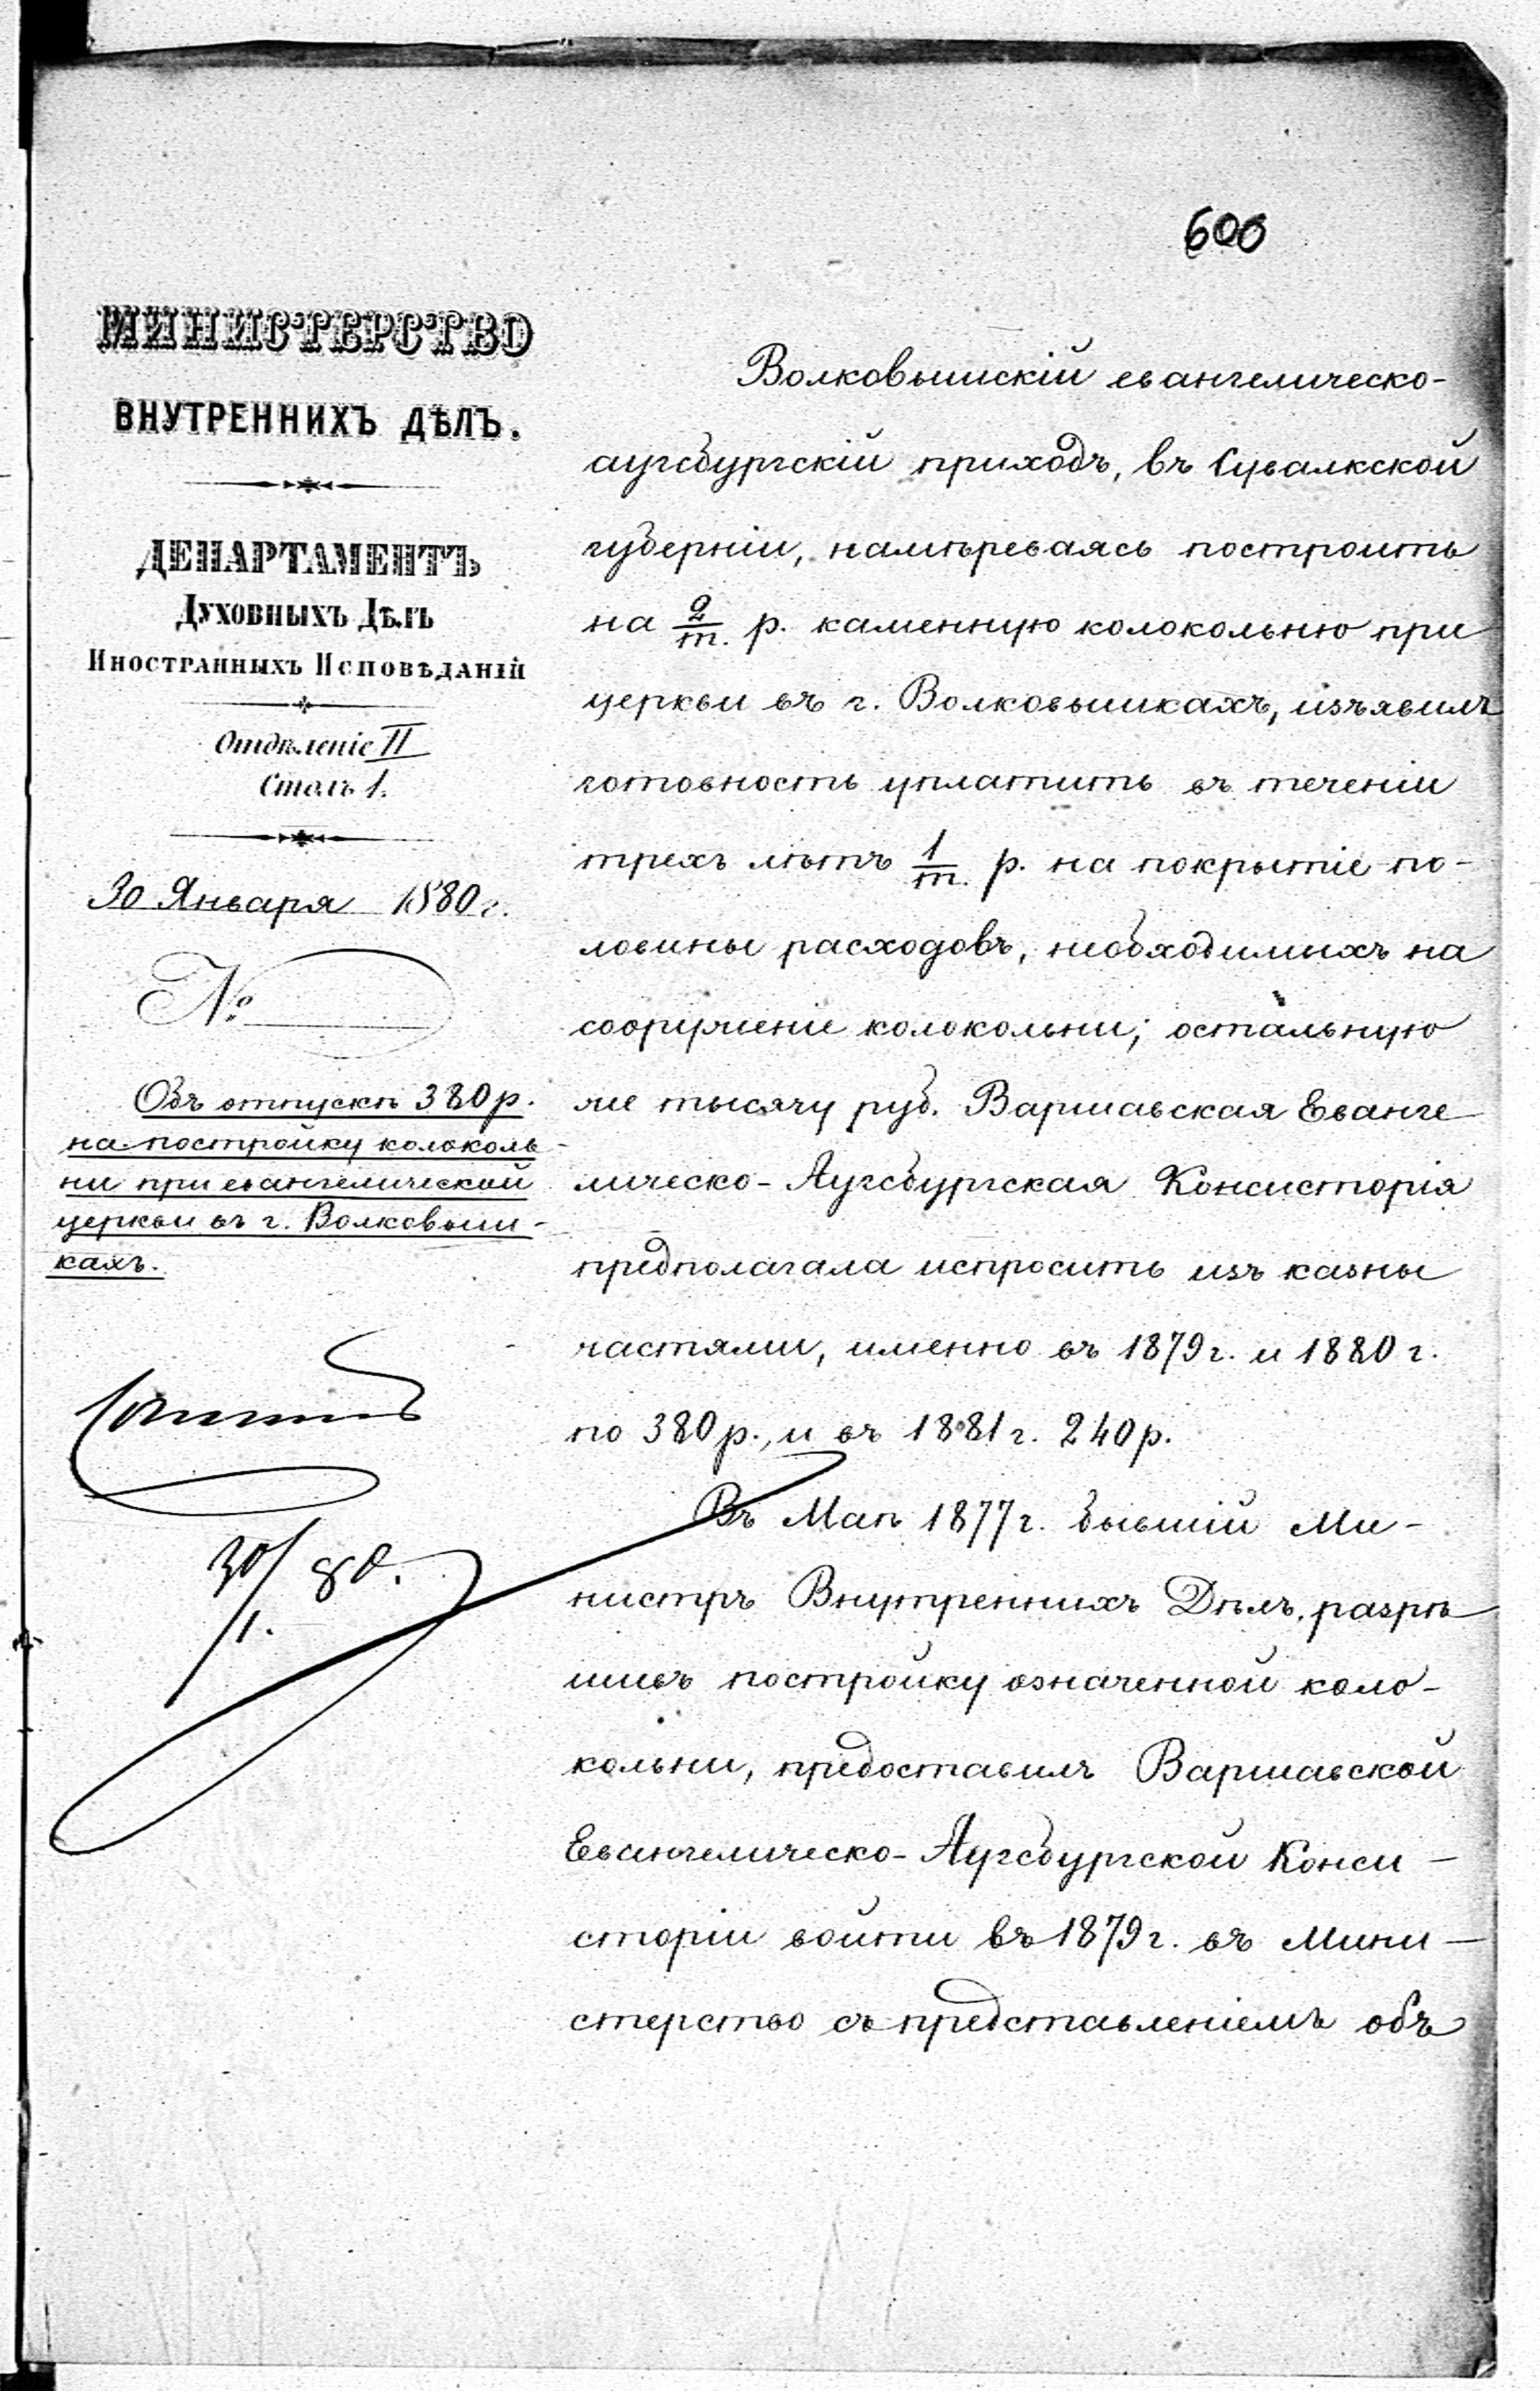 600
МИНИСТЕРСТВО
ВНУТРЕННИХЪ ДѢЛЪ.
ДЕПАРТАМЕНТЪ
Духовныхъ Дѣлъ
Иностранныхъ Исповѣданій
Отдѣленіе II
Столъ 1.
30 Января 1880 г.
№
Объ отпускѣ 380 р.
на постройку колоколь-
ни при евангелической
церкви въ г. Волковыш-
кахъ.
30/1. 80.
Волковышскій евангелическо-
аугсбургскій приходъ, въ Сувалкской
губерніи, намѣреваясь построить
на 2/т. р. каменную колокольню при
церкви въ г. Волковышкахъ, изъявилъ
готовность уплатить въ теченіи
трехъ лѣтъ 1/т. р. на покрытіе по-
ловины расходовъ, необходимыхъ на
сооруженіе колокольни; остальную
же тысячу руб. Варшавская Еванге
лическо-Аугсбургская Консисторія
предполагала испросить изъ казны
частями, именно въ 1879 г. и 1880 г.
по 380 р., и въ 1881 г. 240 р.
Въ Маѣ 1877 г. бывшій Ми-
нистръ Внутреннихъ Дѣлъ, разрѣ
шивъ постройку означенной коло-
кольни, предоставилъ Варшавской
Евангелическо-Аугсбургской Конси-
сторіи войти въ 1879 г. въ Мини-
стерство съ представленіемъ объ